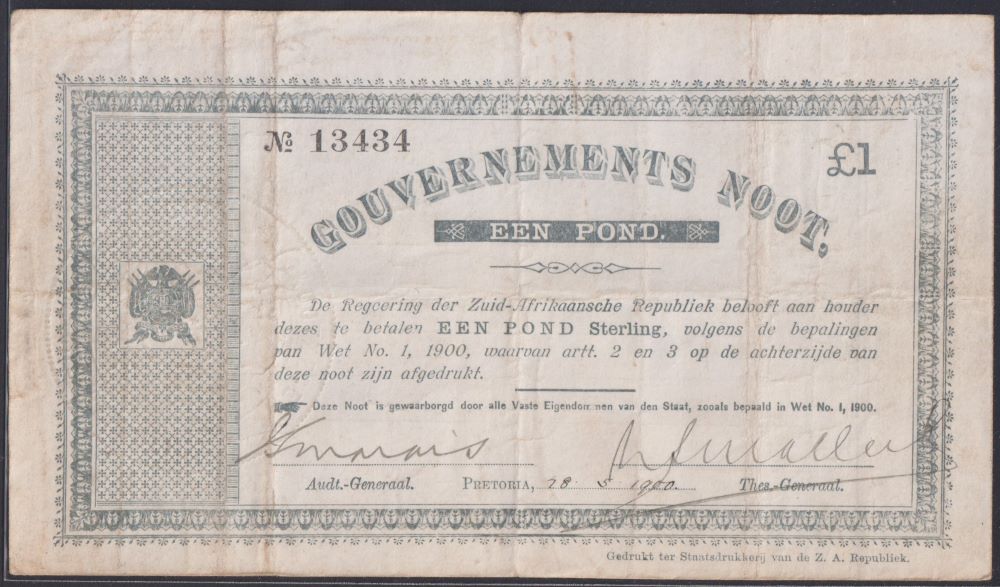 № 13434
£1
GOUVERNEMENTS NOOT,
EEN POND.
De Regeering der Zuid-Afrikaansche Republiek belooft aan houder
dezes te betalen EEN POND Sterling, volgens de bepalingen
van Wet No. 1, 1900, waarvan artt. 2 en 3 op de achterzijde van
deze noot zijn afgedrukt.
Deze Noot is gewaarborgd door alle Vaste Eigendommen van den Staat, zooals bepaald in Wet No. 1, 1900.
Marais
Audt.-Generaal. PRETORIA, 28 5 1900. Thes.-Generaal.
Gedrukt ter Staatsdrukkerij van de Z. A. Republiek.